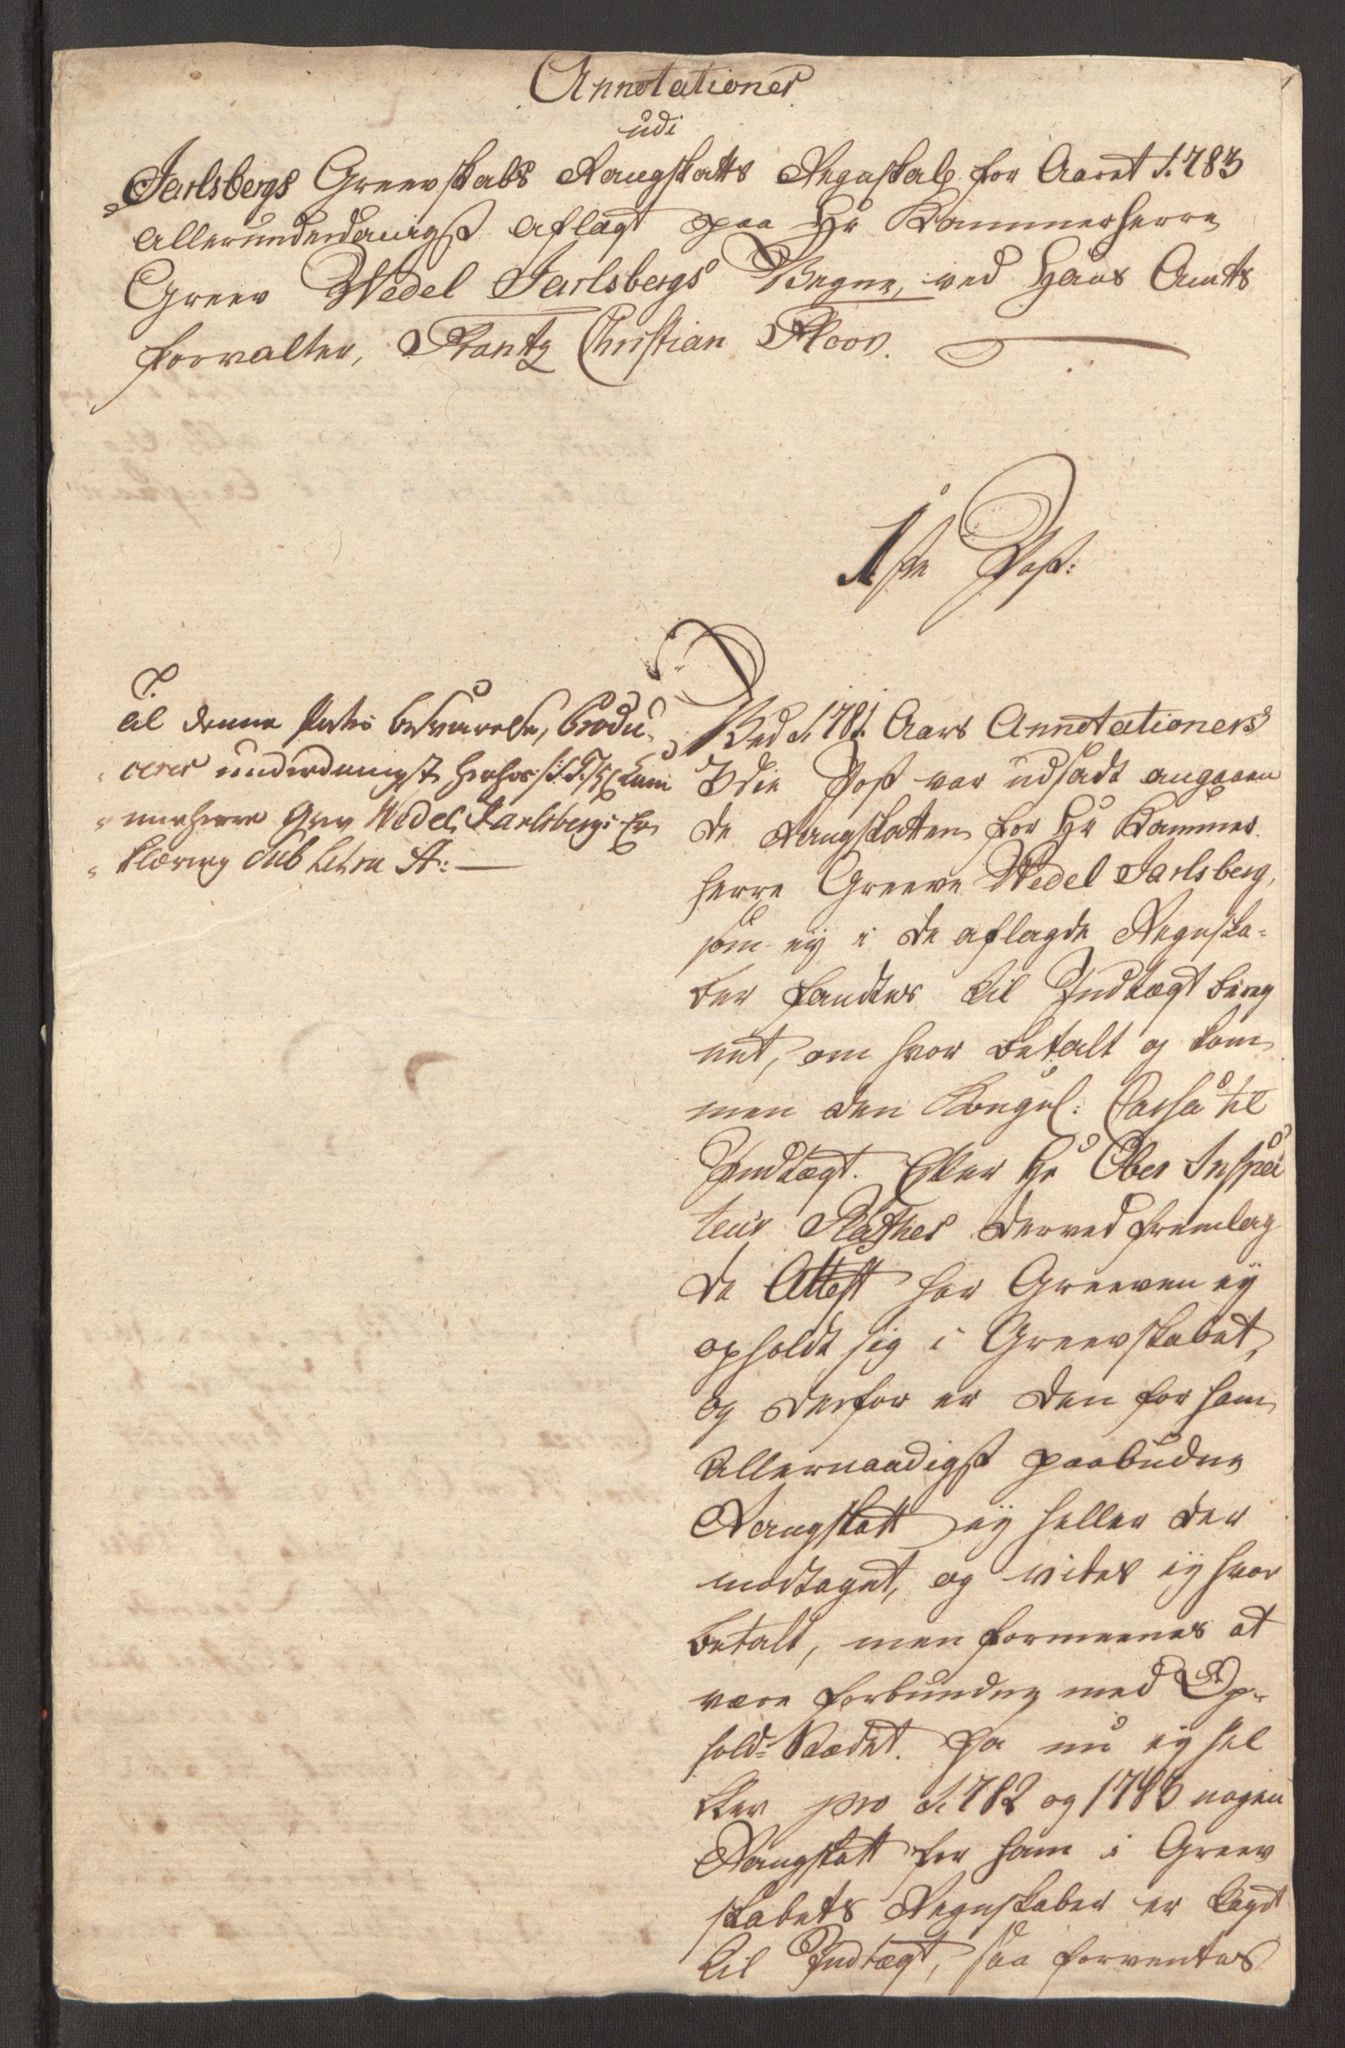 Annotationer
udi
Jarlsbergs Greevskabs Rangskatts Regnskab for Aaret 1783
allerunderdanigst aflagt paa Hr Kammerherre
Greev Wedel Jarlsbergs Vegne, ved Hans Amts
forvalter, Frantz Christian Skoov.
1ste Post:
Til denne Posts besvarelse, Produ-
cerer underdanigst hierhos Kam
merherre Grev Wedel Jarlsbergs Er
klæring sub Litra A:
Ved 1781 Aars Annotationers
3die Post var udsadt angaaen
de Rangskatten for Hr Kammer
herre Greeve Wedel Jarlsberg,
som ey i de aflagde Regnska-
ber fandtes til Indtægt bereg
net, om hvor betalt og kom
men den Kongel: Cassa til
Indtægt. Efter Hr Ober Inspec
teur Røthes derved fremlag
de Attest har Greeven ey
opholdt sig i Greevskabet,
og derfor er den for ham
allernaadigst paabudne
Rangskatt ey heller der
modtaget, og vides ey hvor
betalt, men formeenes at
være forbunden med Op-
holds Stædet. Da nu ey hel
ler pro 1782 og 1783 nogen
Rangskatt for ham i Greev
skabets Regnskaber er tagt
til Indtægt, saa forventes